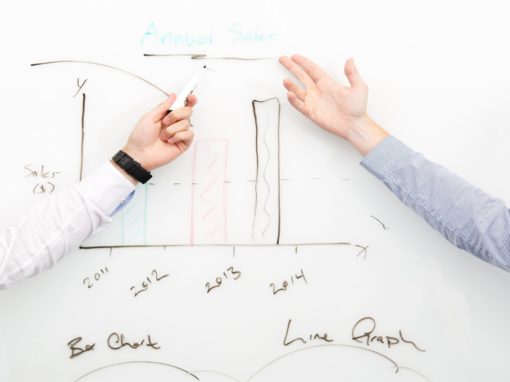 Annual Sales
y
Sales
($)
x
2011 2012 2013 2014
Bar Chart
Line Graph